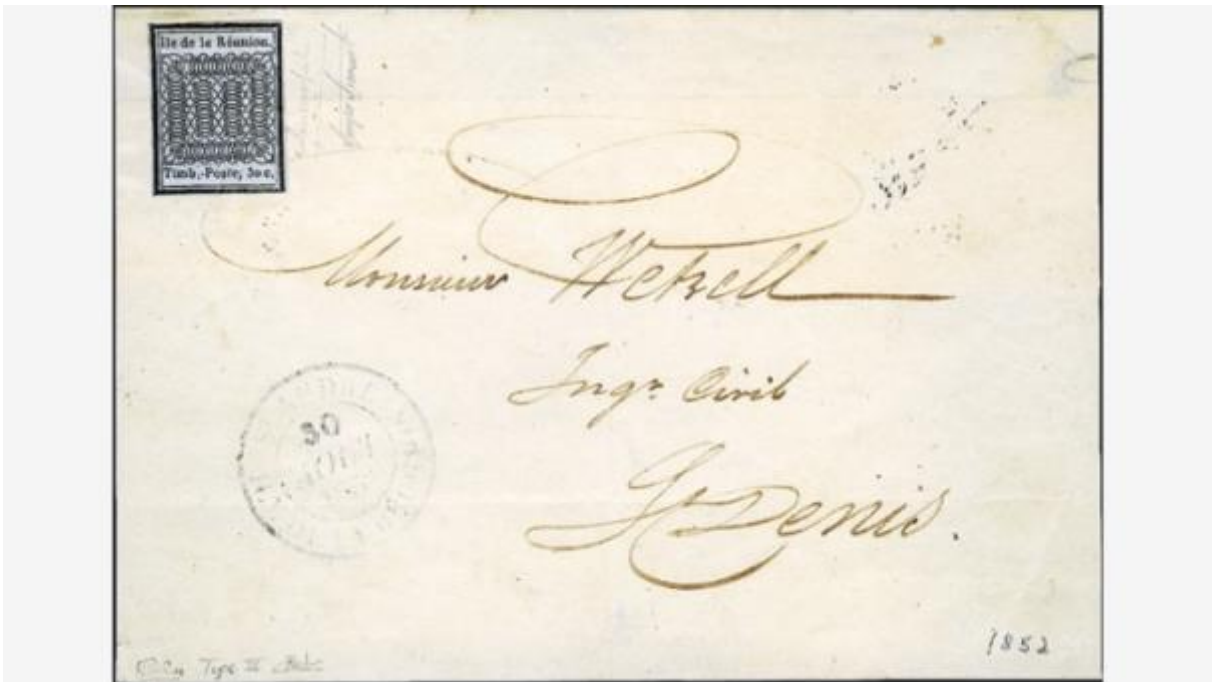 Ile de la Réunion.
Timb.-Poste, 30 c.
Monsieur Wetzell
Ingr. Civil
St Denis.
30
1852
Type III